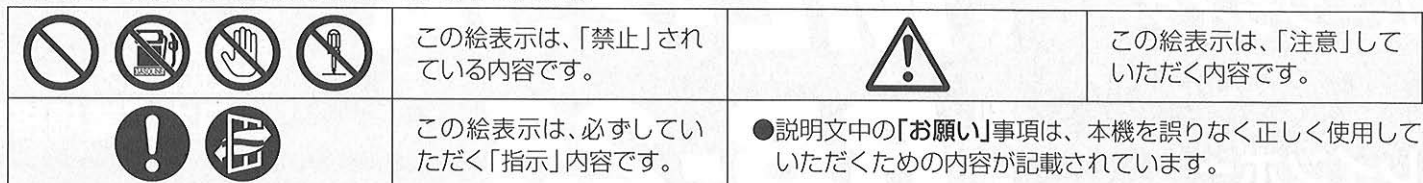 GASOLINE
この絵表示は、「禁止」され
ている内容です。
この絵表示は、「注意」して
いただく内容です。
この絵表示は、必ずしてい
ただく「指示」内容です。
●説明文中の「お願い」事項は、本機を誤りなく正しく使用して
いただくための内容が記載されています。